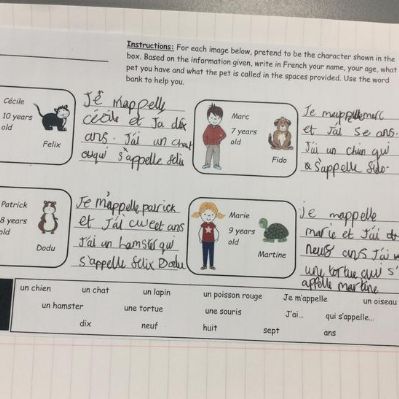 Instructions: For each image below, pretend to be the character shown in the
box. Based on the information given, write in French your name, your age, what
pet you have and what the pet is called in the spaces provided. Use the word
bank to help you.
Cécile
10 years
old
Felix
Je mappelle
cécile et Ja dix
ans. Jai un chat
s'appelle felix
Marc
7 years
old
Fido
Je marc
et Jai se ans.
Jai un chien qui
s'appelle fido.
Patrick
8 years
old
Dodu
Je m'appelle patrick
et Jai cweet ans
J'ai un hamster qui
s'appelle felix Dodu
Marie
9 years
old
Martine
Je mappelle
marie et Jai
neuf ans J'ai
une tortue qui s'
appelle martine
un chien un chat un lapin un poisson rouge Je m'appelle un oiseau
un hamster une tortue une souris J'ai... qui s'appelle...
dix neuf huit sept ans